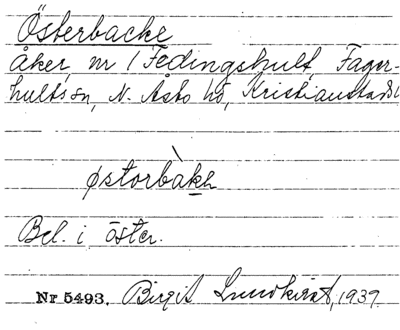 Österbacke
Åker, nr 1 Fedingshult, Fager-
hults sn, N. Åsbo hd, Kristianstads l
østorbàkh
Bel. i öster.
Nr 5493. Birgit Lundkvist, 1937.